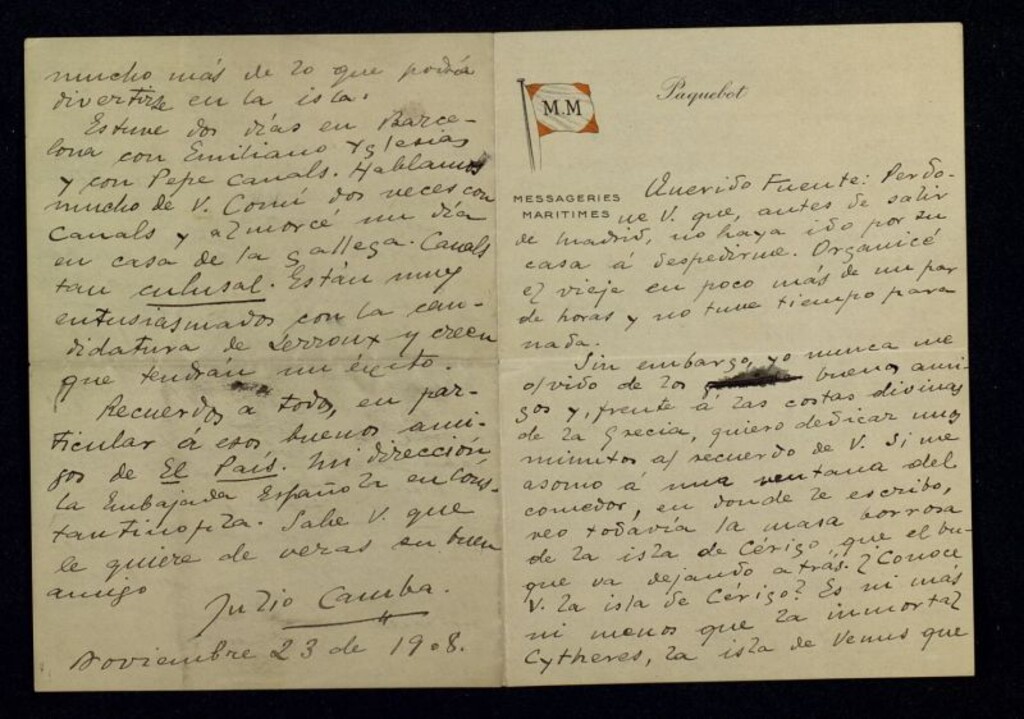 Paquebot
M.M
MESSAGERIES
MARITIMES
Querido Fuente: Perdo-
ne V. que, antes de salir
de Madrid, no haya ido por su
casa á despedirme. Organicé
el viaje en poco más de un par
de horas y no tuve tiempo para
nada.
Sin embargo, yo nunca me
olvido de los buenos ami-
gos y, frente á las costas divinas
de la Grecia, quiero dedicar unos
minutos al recuerdo de V. Si me
asomo á una ventana del
comedor, en donde le escribo,
veo todavía la masa borrosa
de la isla de Cérigo que el bu-
que va dejando atrás. ¿Conoce
V. la isla de Cérigo? Es ni más
ni menos que la inmortal
Cytheres, la isla de Venus que
mucho más de lo que podría
divertirse en la isla.
Estuve dos días en Barce-
lona con Emiliano Yglesias
y con Pepe Canals. Hablamos
mucho de V. Comí dos veces con
Canals y almorcé un día
en casa de la gallega. Canals
tan culusal. Están muy
entusiasmados con la can-
didatura de Lerroux y creen
que tendrán un éxito.
Recuerdos a todos, en par-
ticular á esos buenos ami-
gos de El País. Mi dirección
la Embajada Española en Cons-
tantinopla. Sabe V. que
le quiere de veras su buen
amigo
Julio Camba.
Noviembre 23 de 1908.